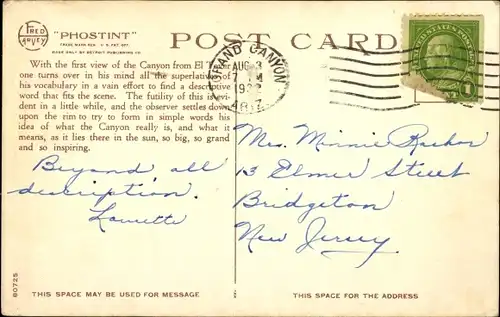 FRED HARVEY
"PHOSTINT"
TRADE MARK REG. U.S. PAT. OFF.
MADE ONLY BY DETROIT PUBLISHING CO.
POST CARD
GRAND CANYON
AUG 3
7 PM
1932
ARIZ.
1
With the first view of the Canyon from El Tovar
one turns over in his mind all the superlatives of
his vocabulary in a vain effort to find a descriptive
word that fits the scene. The futility of this is evi-
dent in a little while, and the observer settles down
upon the rim to try to form in simple words his
idea of what the Canyon really is, and what it
means, as it lies there in the sun, so big, so grand
and so inspiring.
Beyond all
description.
Mrs. Minnie
13 Elmer Street
Bridgeton
New Jersey
80725
THIS SPACE MAY BE USED FOR MESSAGE
THIS SPACE IS FOR THE ADDRESS